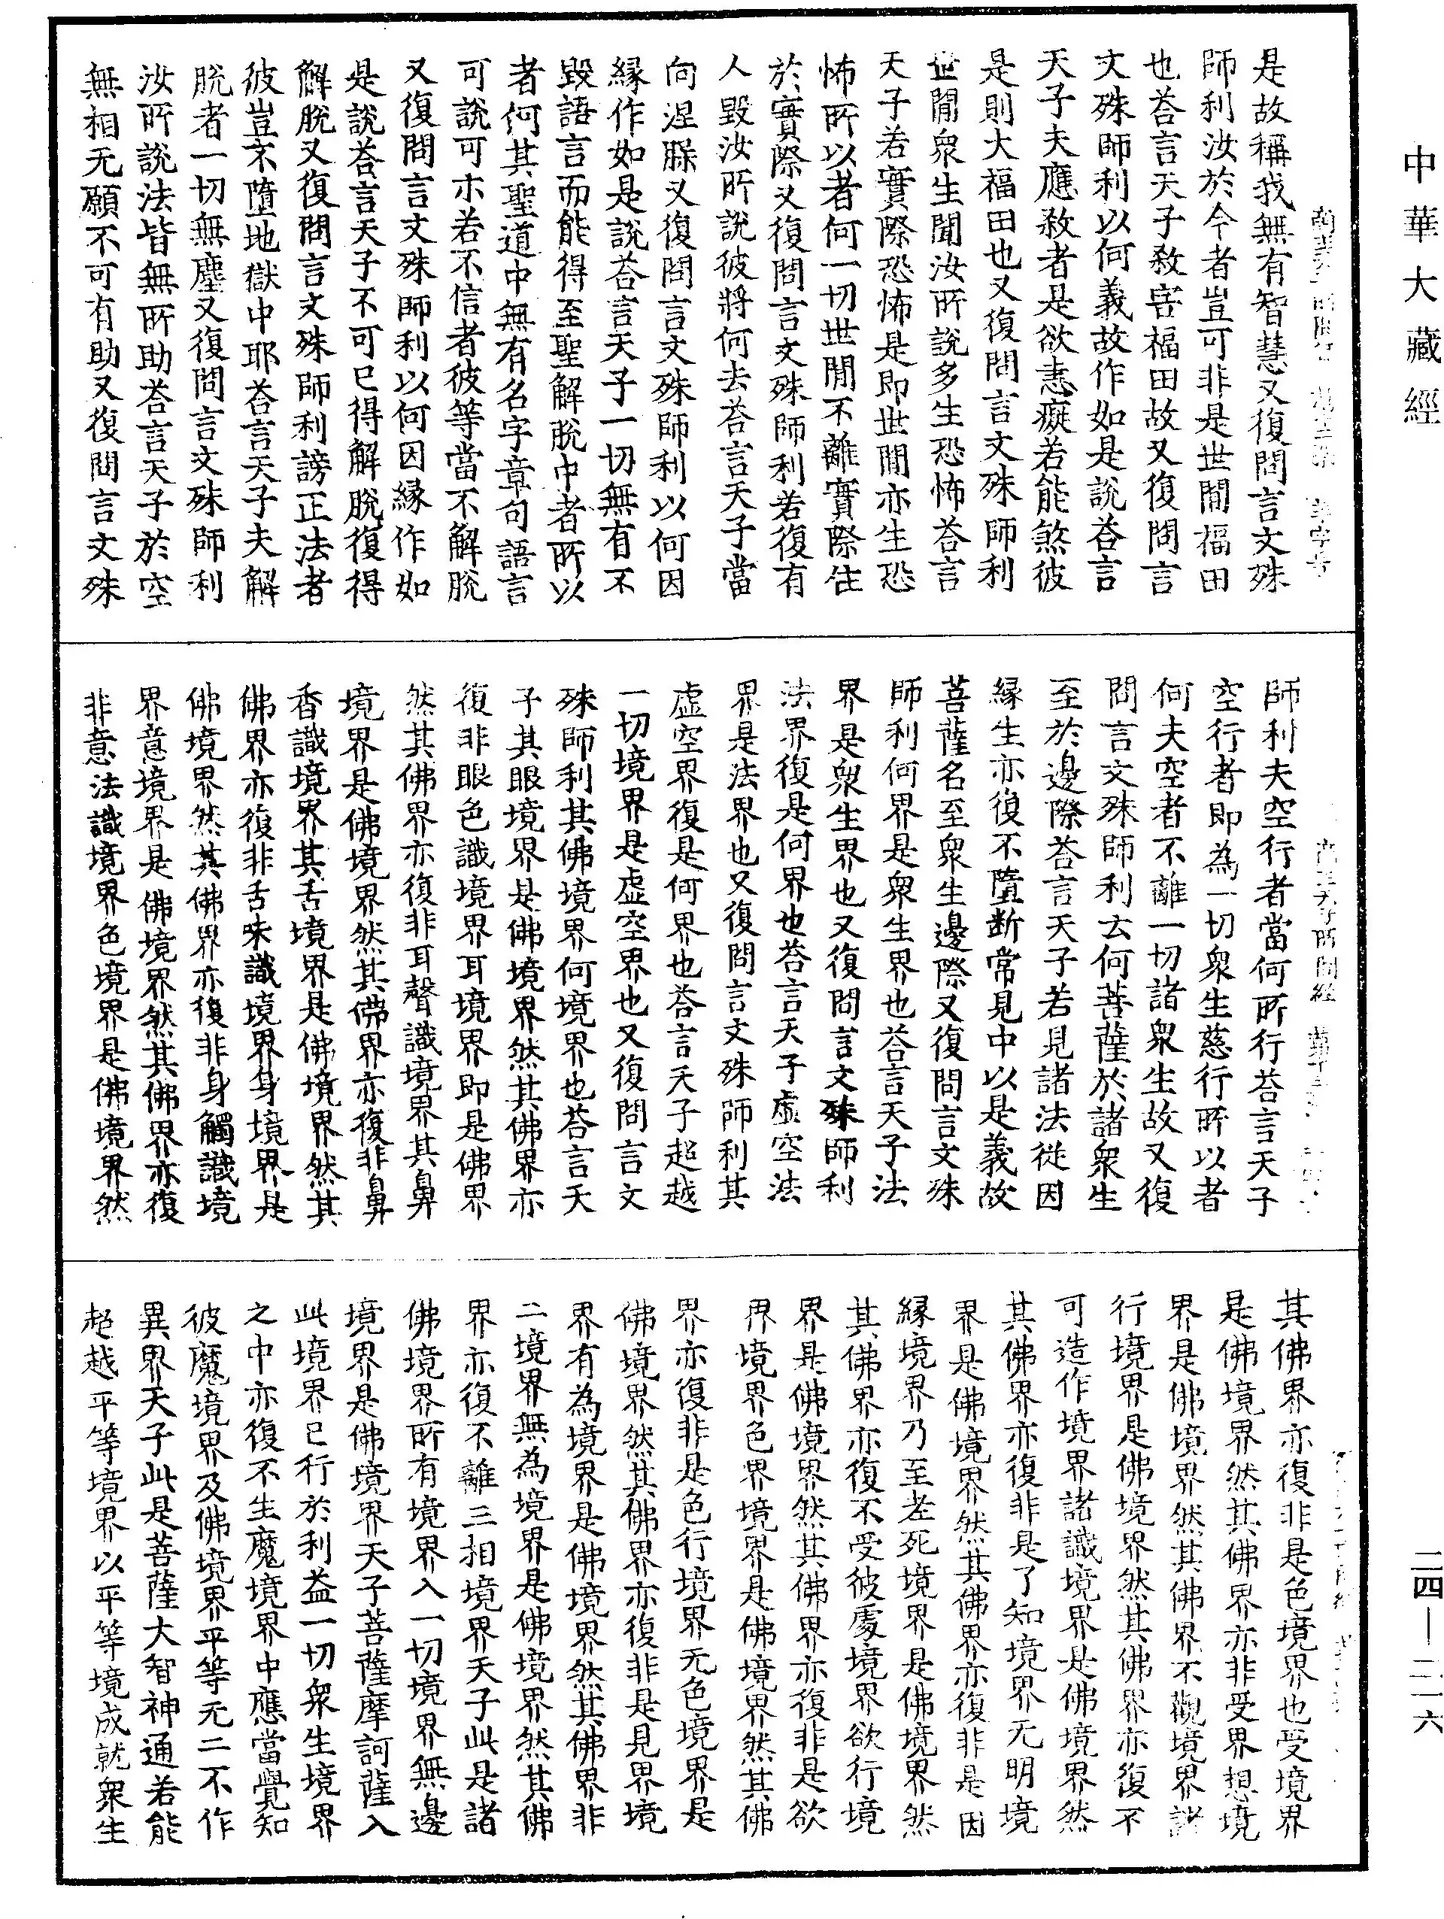 中華大藏經
是故稱我無有智慧又復問言文殊
師利汝於今者豈可非是世間福田
也荅言天子殺害福田故又復問言
文殊師利以何義故作如是說荅言
天子夫應殺者是欲恚癡若能煞彼
是則大福田也又復問言文殊師利
世間衆生聞汝所說多生恐怖荅言
天子若實際恐怖是即世間亦生恐
怖所以者何一切世間不離實際住
於實際又復問言文殊師利若復有
人毀汝所說彼將何去荅言天子當
向涅脲又復問言文殊師利以何因
緣作如是說荅言天子一切無有不
毀語言而能得至聖解脫中者所以
者何其聖道中無有名字章句語言
可說可示若不信者彼等當不解脫
又復問言文殊師利以何因緣作如
是說荅言天子不可已得解脫復得
解脫又復問言文殊師利謗正法者
彼豈不墮地獄中耶荅言天子夫解
脫者一切無塵又復問言文殊師利
汝所說法皆無所助荅言天子於空
無相无願不可有助又復問言文殊
師利夫空行者當何所行荅言天子
空行者即為一切衆生慈行所以者
何夫空者不離一切諸衆生故又復
問言文殊師利云何菩薩於諸衆生
至於邊際荅言天子若見諸法從因
緣生亦復不墮斷常見中以是義故
菩薩名至衆生邊際又復問言文殊
師利何界是衆生界也荅言天子法
界是衆生界也又復問言文殊師利
法界復是何界也荅言天子虛空法
界是法界也又復問言文殊師利其
虛空界復是何界也荅言天子超越
一切境界是虛空界也又復問言文
殊師利其佛境界何境界也荅言天
子其眼境界是佛境界然其佛界亦
復非眼色識境界耳境界即是佛界
然其佛界亦復非耳聲識境界其鼻
境界是佛境界然其佛界亦復非鼻
香識境界其舌境界是佛境界然其
佛界亦復非舌味識境界身境界是
佛境界然其佛界亦復非身觸識境
界意境界是佛境界然其佛界亦復
非意法識境界色境界是佛境界然
其佛界亦復非是色境界也受境界
是佛境界然其佛界亦非受界想境
界是佛境界然其佛界不觀境界諸
行境界是佛境界然其佛界亦復不
可造作境界諸識境界是佛境界然
其佛界亦復非是了知境界无明境
界是佛境界然其佛界亦復非是因
緣境界乃至老死境界是佛境界然
其佛界亦復不受彼處境界欲行境
界是佛境界然其佛界亦復非是欲
界境界色界境界是佛境界然其佛
界亦復非是色行境界无色境界是
佛境界然其佛界亦復非是見界境
界有為境界是佛境界然其佛界非
二境界無為境界是佛境界然其佛
界亦復不離三相境界天子此是諸
佛境界所有境界入一切境界無邊
境界是佛境界天子菩薩摩訶薩入
此境界已行於利益一切衆生境界
之中亦復不生魔境界中應當覺知
彼魔境界及佛境界平等无二不作
異界天子此是菩薩大智神通若能
超越平等境界以平等境成就衆生
二四—二一六